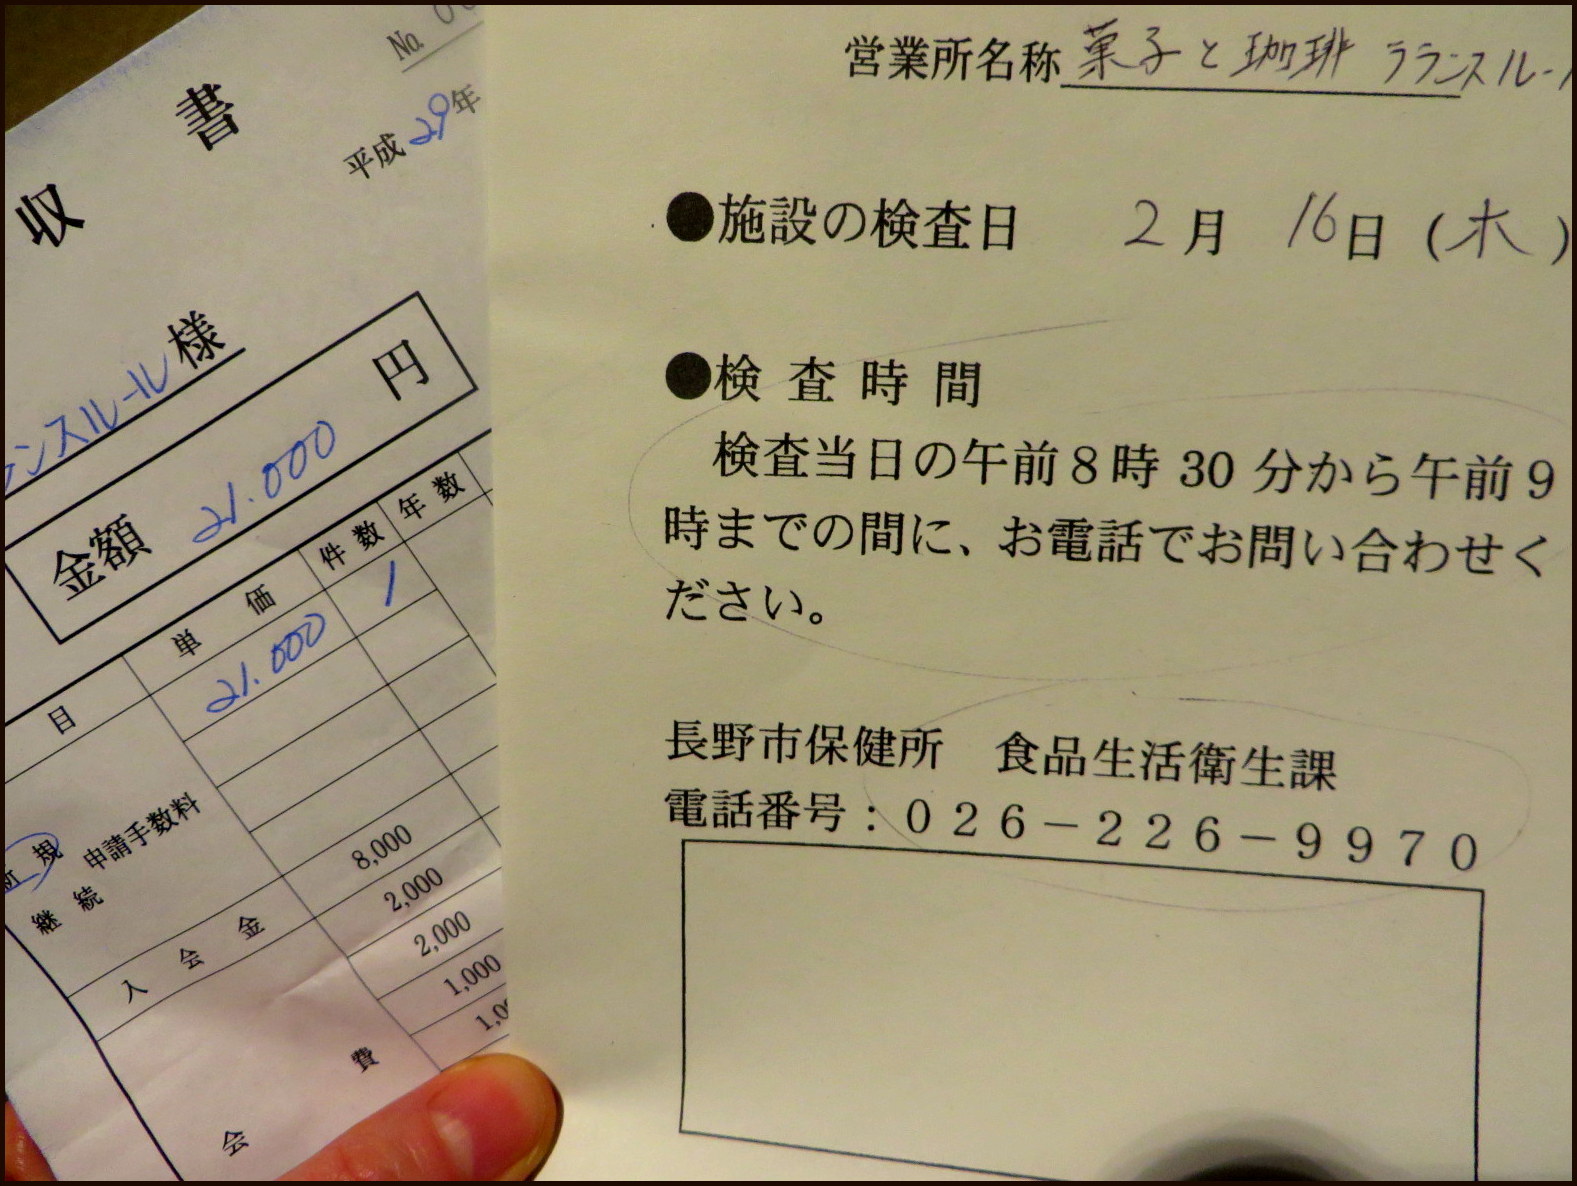 No.
収 書
平成29年
ランスルール様
金額 21.000 円
目 単価 件数 年数
21.000 1
新規 申請手数料
継続
8,000
入会金 2,000
2,000
1,000
会費
営業所名称 菓子と珈琲 ラランスルー
●施設の検査日 2月 16日(木)
●検査時間
検査当日の午前8時30分から午前9
時までの間に、お電話でお問い合わせく
ださい。
長野市保健所 食品生活衛生課
電話番号:026-226-9970